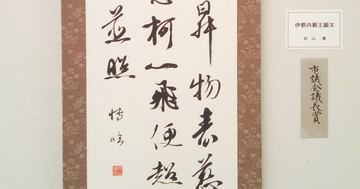 昇物表慈
柯一飛便超
並照
博臨
伊都内親王願文
市議会議長賞